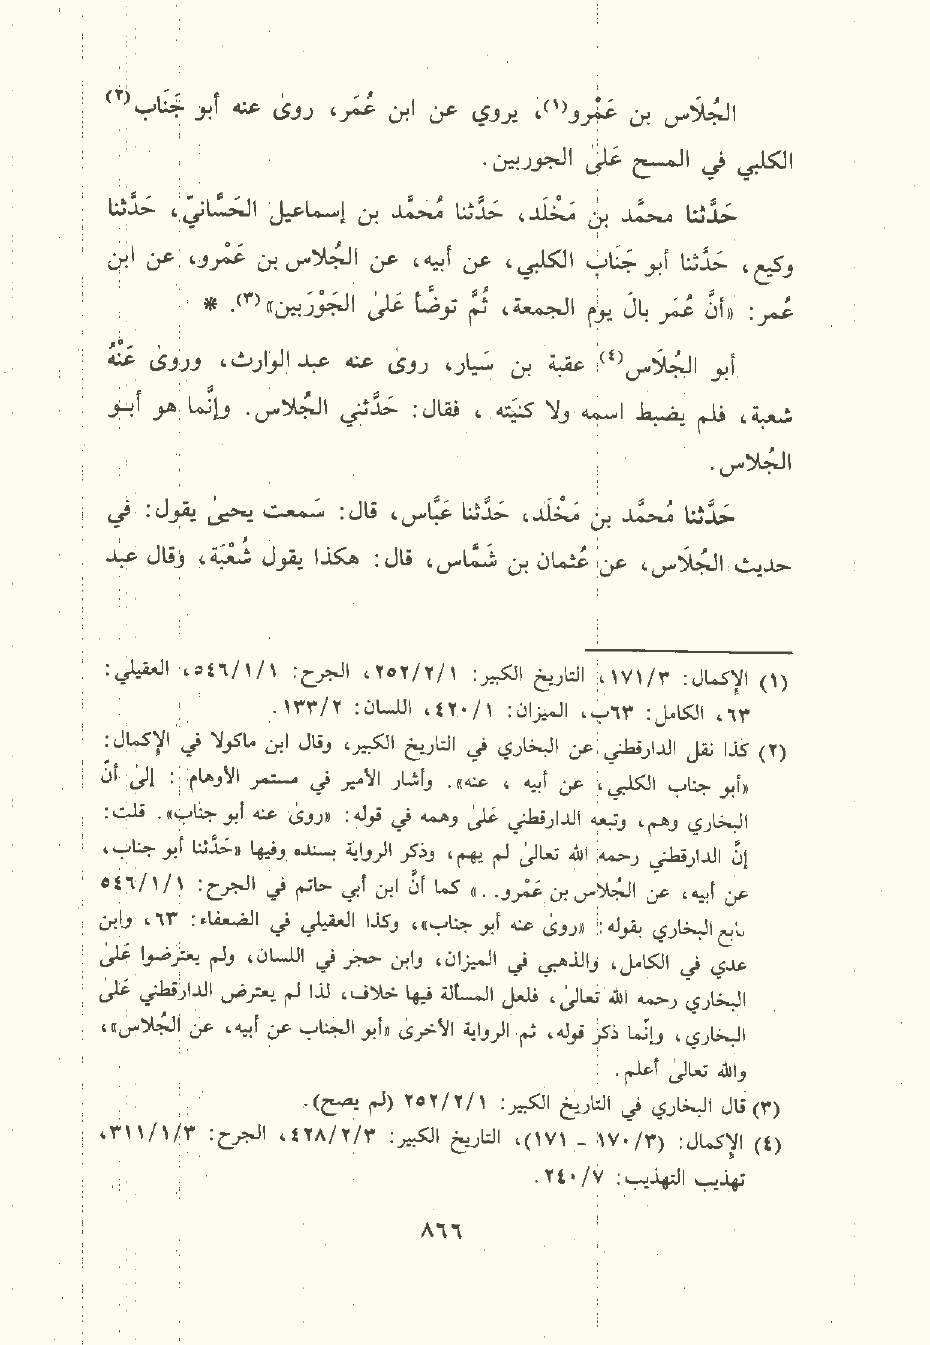 الجُلاَس بن عَمْرو(١)، يروي عن ابن عُمَر، روىٰ عنه أبو جَنَاب(٢)
الكلبي في المسح عَلىٰ الجوربين.
حَدَّثنا محمَّد بن مَخْلَد، حَدَّثنا مُحمَّد بن إسماعيل الحَسَّانيّ، حَدَّثنا
وكيع، حَدَّثنا أبو جَنَاب الكلبي، عن أبيه، عن الجُلاس بن عَمْرو، عن ابن
عُمر: «أنَّ عُمَر بَالَ يوم الجمعة، ثُمَّ توضَّأ عَلىٰ الجَوْرَبين»(٣). *
أبو الجُلاَس(٤) عقبة بن سَيار، روىٰ عنه عبد الوارث، وروىٰ عَنْهُ
شعبة، فلم يضبط اسمه ولا كنيَته ، فقال: حَدَّثني الجُلاس. وإنَّما هو أبو
الجُلاس.
حَدَّثنا مُحمَّد بن مَخْلَد، حَدَّثنا عَبَّاس، قال: سَمعت يحيىٰ يقول: في
حديث الجُلاَس، عن عُثمان بن شَمَّاس، قال: هكذا يقول شُعْبَة، وقال عبد
(١) الإكمال: ١٧١/٣، التاريخ الكبير: ٢٥٢/٢/١، الجرح: ٥٤٦/١/١، العقيلي:
٦٣، الكامل: ٦٣ب، الميزان: ٤٢٠/١، اللسان: ١٣٣/٢.
(٢) كذا نقل الدارقطني عن البخاري في التاريخ الكبير، وقال ابن ماكولا في الإكمال:
«أبو جناب الكلبي، عن أبيه ، عنه». وأشار الأمير في مستمر الأوهام: إلىٰ أنَّ
البخاري وهم، وتبعه الدارقطني عَلىٰ وهمه في قوله: «روىٰ عنه أبو جناب». قلت:
إنَّ الدارقطني رحمه الله تعالىٰ لم يهم، وذكر الرواية بسنده وفيها «حَدَّثنا أبو جناب،
عن أبيه، عن الجُلاس بن عَمْرو. .» كما أنَّ ابن أبي حاتم في الجرح: ٥٤٦/١/١
تابع البخاري بقوله: «روىٰ عنه أبو جناب»، وكذا العقيلي في الضعفاء: ٦٣، وابن
عدي في الكامل، والذهبي في الميزان، وابن حجر في اللسان، ولم يعترضوا عَلىٰ
البخاري رحمه الله تعالىٰ، فلعل المسألة فيها خلاف، لذا لم يعترض الدارقطني عَلىٰ
البخاري، وإنَّما ذكر قوله، ثم الرواية الأخرىٰ «أبو الجناب عن أبيه، عن الجُلاس»،
والله تعالىٰ أعلم.
(٣) قال البخاري في التاريخ الكبير: ٢٥٢/٢/١ (لم يصح).
(٤) الإكمال: (١٧٠/٣ - ١٧١)، التاريخ الكبير: ٤٢٨/٢/٣، الجرح: ٣١١/١/٣،
تهذيب التهذيب: ٢٤٠/٧.
٨٦٦